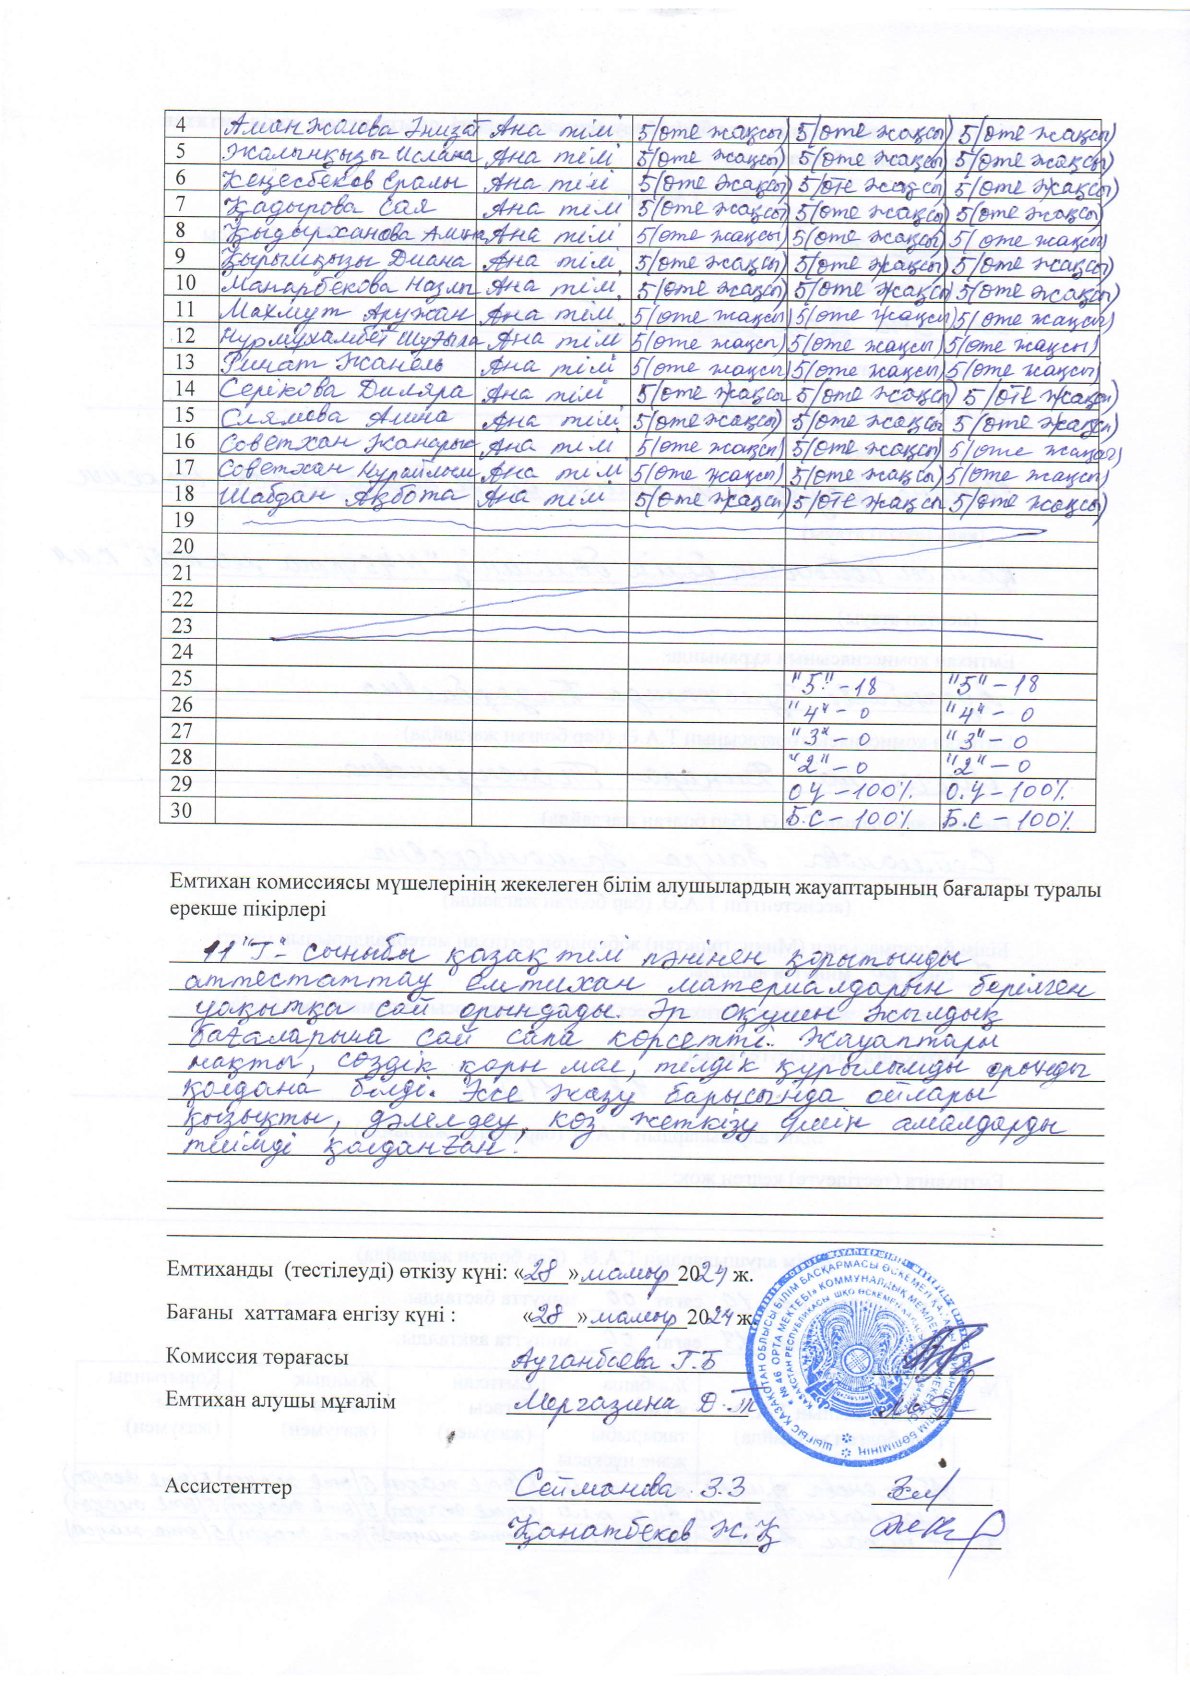 4 Аманжолова Әнизат Ана тілі 5(өте жақсы) 5(өте жақсы) 5(өте жақсы)
5 Жалынқызы Ислана Ана тілі 5(өте жақсы) 5(өте жақсы) 5(өте жақсы)
6 Кеңесбеков Ералы Ана тілі 5(өте жақсы) 5(өте жақсы 5(өте жақсы)
7 Қадырова Сая Ана тілі 5(өте жақсы) 5(өте жақсы) 5(өте жақсы)
8 Қыдырханова Амина Ана тілі 5(өте жақсы) 5(өте жақсы) 5(өте жақсы)
9 Қырымқызы Диана Ана тілі 5(өте жақсы) 5(өте жақсы) 5(өте жақсы)
10 Манарбекова Назлы Ана тілі 5(өте жақсы) 5(өте жақсы 5(өте жақсы)
11 Махмут Аружан Ана тілі 5(өте жақсы) 5(өте жақсы) 5(өте жақсы)
12 Нурмухамбет Шуғыла Ана тілі 5(өте жақсы) 5(өте жақсы) 5(өте жақсы)
13 Ринат Жанель Ана тілі 5(өте жақсы) 5(өте жақсы) 5(өте жақсы)
14 Серікова Диляра Ана тілі 5(өте жақсы 5(өте жақсы) 5(өте жақсы)
15 Слямова Алина Ана тілі 5(өте жақсы) 5(өте жақсы 5(өте жақсы)
16 Советхан Жанарыс Ана тілі 5(өте жақсы) 5(өте жақсы) 5(өте жақсы)
17 Советхан Нурайлым Ана тілі 5(өте жақсы) 5(өте жақсы) 5(өте жақсы)
18 Шабдан Ақбота Ана тілі 5(өте жақсы) 5(өте жақсы 5(өте жақсы)
19
20
21
22
23
24
25 "5" - 18 "5" - 18
26 "4" - 0 "4" - 0
27 "3" - 0 "3" - 0
28 "2" - 0 "2" - 0
29 О.Ү - 100% О.Ү - 100%
30 Б.С - 100% Б.С - 100%
Емтихан комиссиясы мүшелерінің жекелеген білім алушылардың жауаптарының бағалары туралы
ерекше пікірлері
11 "Г" - сыныбы қазақ тілі пәнінен қорытынды
аттестаттау емтихан материалдарын берілген
уақытқа сай орындады. Әр оқушы жылдық
бағаларына сай сапа көрсетті. Жауаптары
нақты, сөздік қоры мол, тілдік құрылымды орынды
қолдана білді. Эссе жазу барысында ойлары
қызықты, дәлелдеу, көз жеткізу үшін амалдарды
тиімді қолданған.
Емтиханды (тестілеуді) өткізу күні: «28» мамыр 2024 ж.
Бағаны хаттамаға енгізу күні : «28» мамыр 2024 ж.
Комиссия төрағасы Ауганбаева Г.Б
Емтихан алушы мұғалім Мергазина Д.Т
Ассистенттер Сейманова З.З
Қанатбеков Ж.Қ